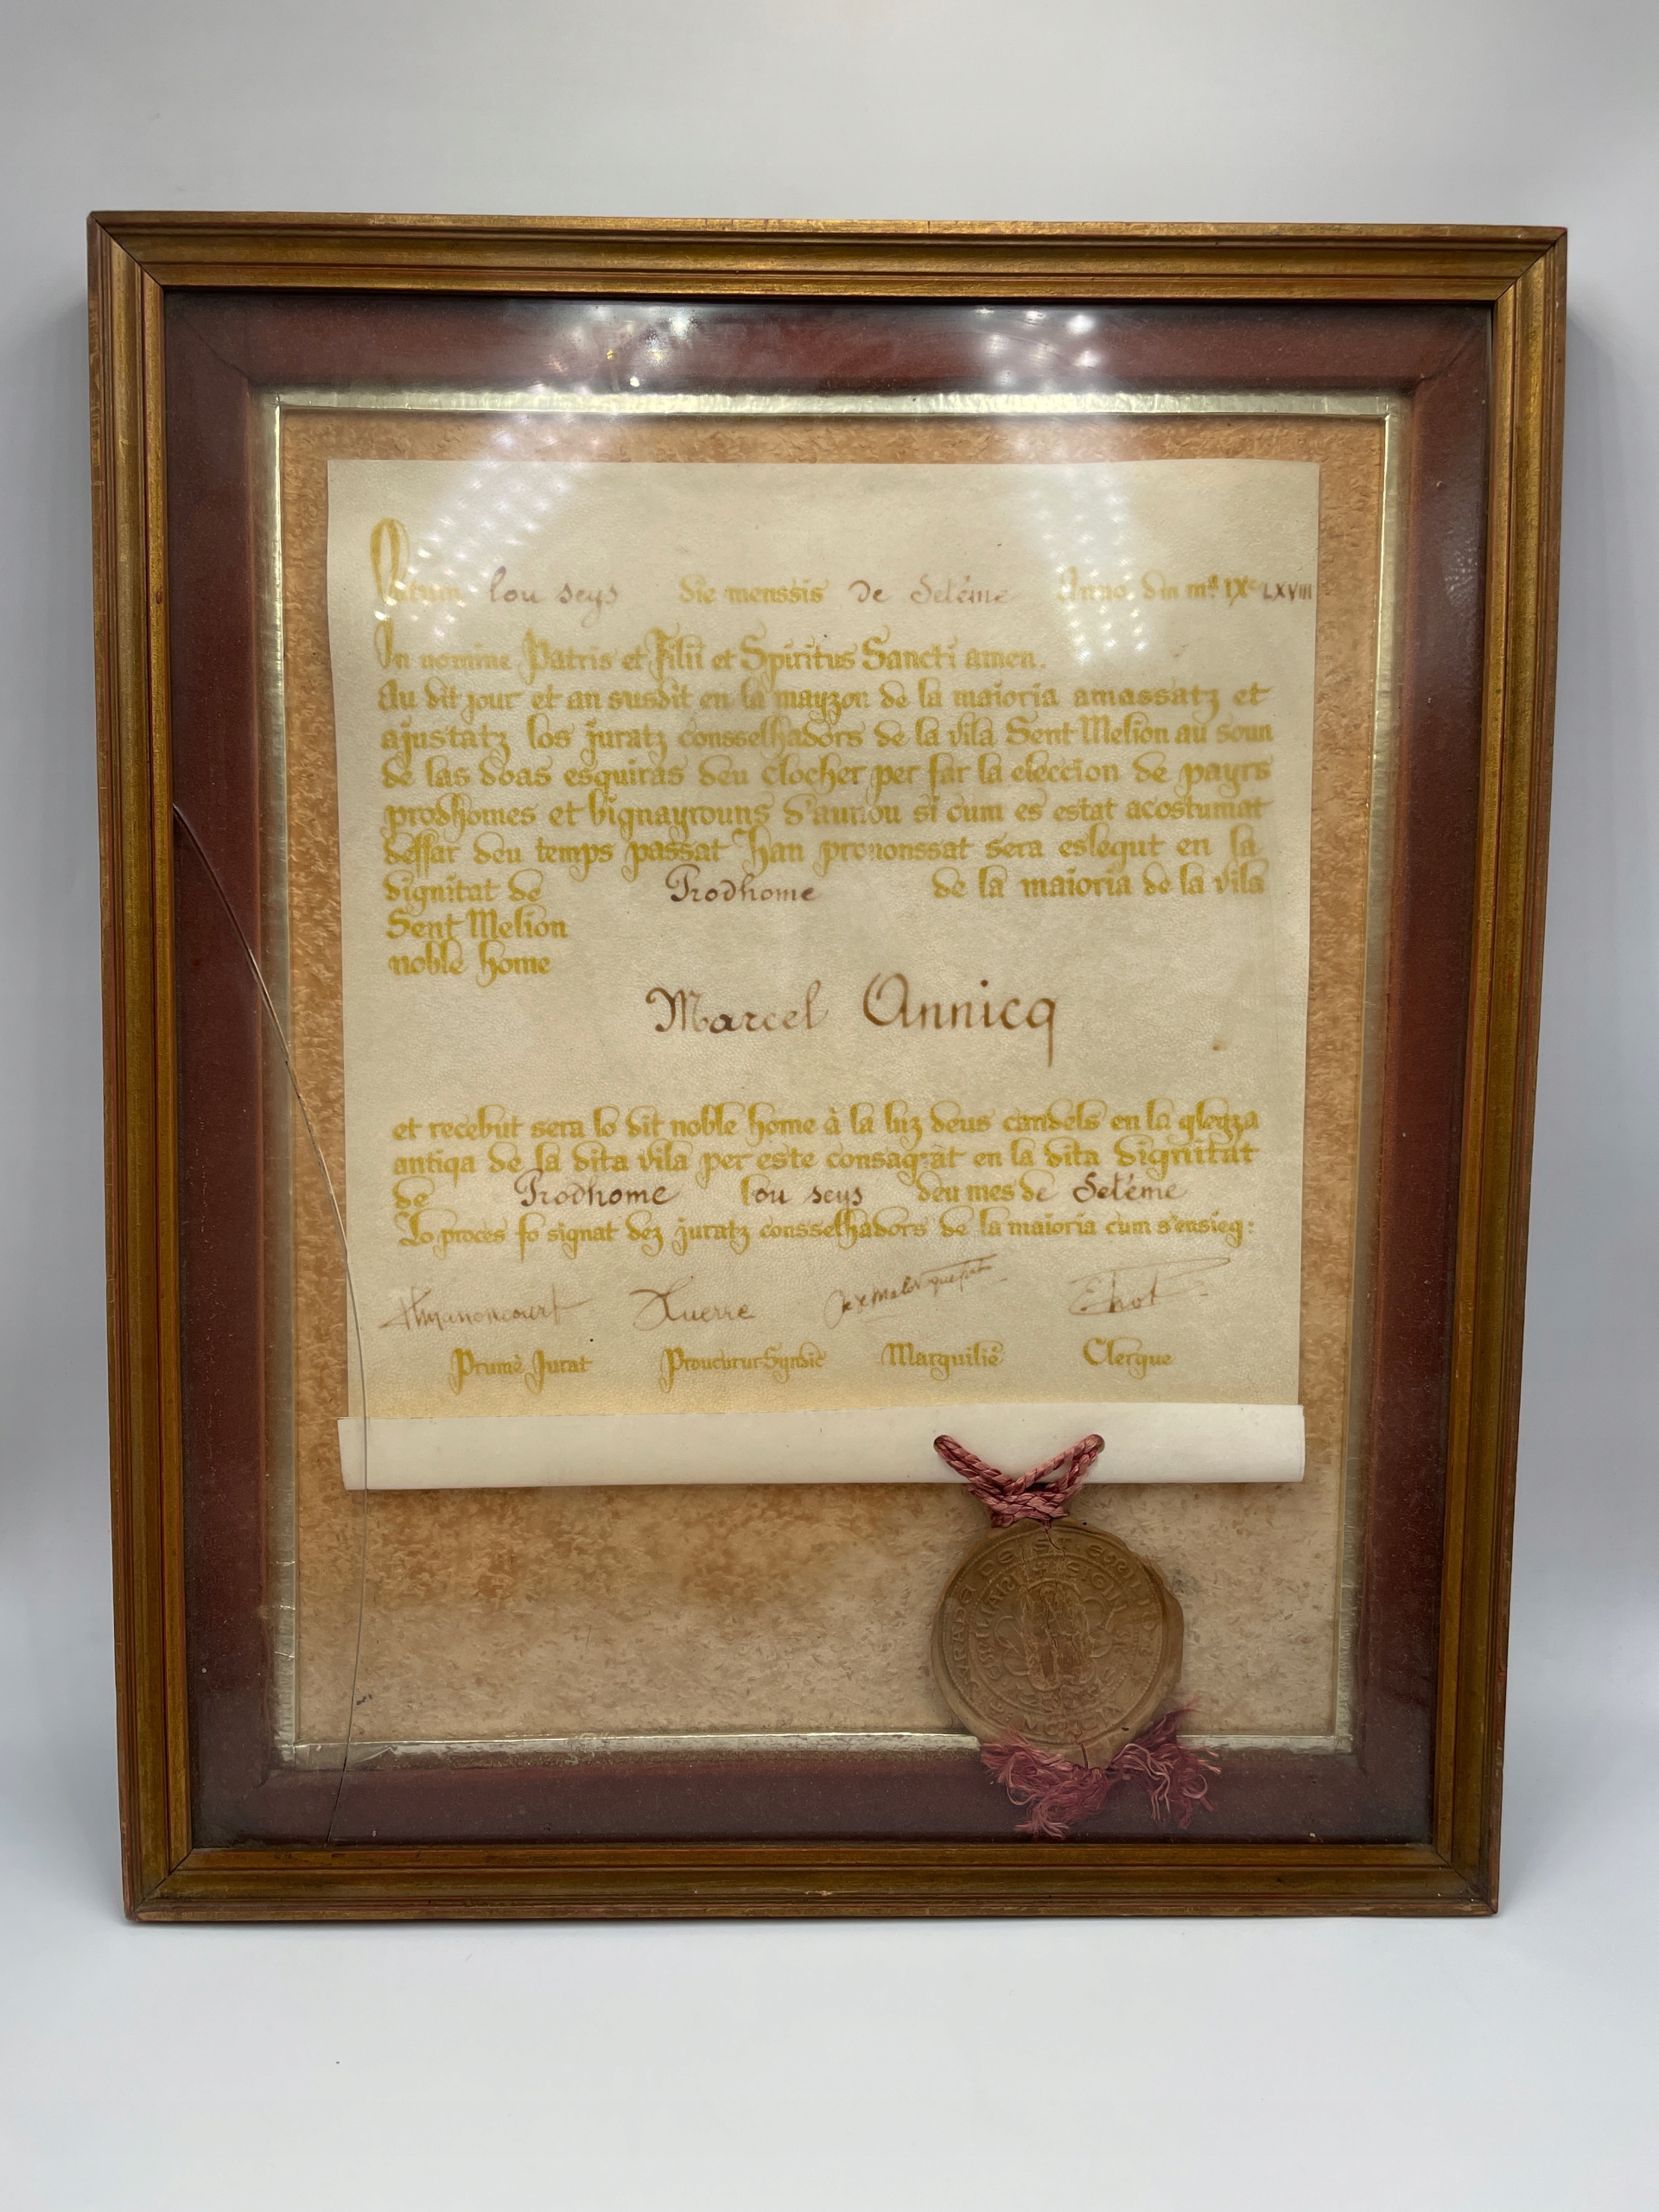 Datum lou seys die menssis de Setéme Anno dm mᵉ IXᶜ LXVIII
In nomine Patris et Filii et Spiritus Sancti amen.
Au dit jour et an susdit en la mayzon de la maioria amassatz et
ajustatz los juratz consselhadors de la vila Sent Melion au soun
de las doas esquiras deu clocher per far la eleccion de payrs
prodhomes et bignayrouns d'aunou si cum es estat acostumat
deffar deu temps passat han prononssat sera eslegut en la
dignitat de Prodhome de la maioria de la vila
Sent Melion
noble home
Marcel Annicq
et recebut sera lo dit noble home à la luz deus candels en la gleyza
antiqa de la dita vila per este consagrat en la dita dignitat
de Prodhome lou seys deu mes de Setéme
Lo proces fo signat dez juratz consselhadors de la maioria cum s'ensieg:
Querre
Prumè Jurat Proucurur Syndic Marguilié Clergue
JURADE DE ST EMILION